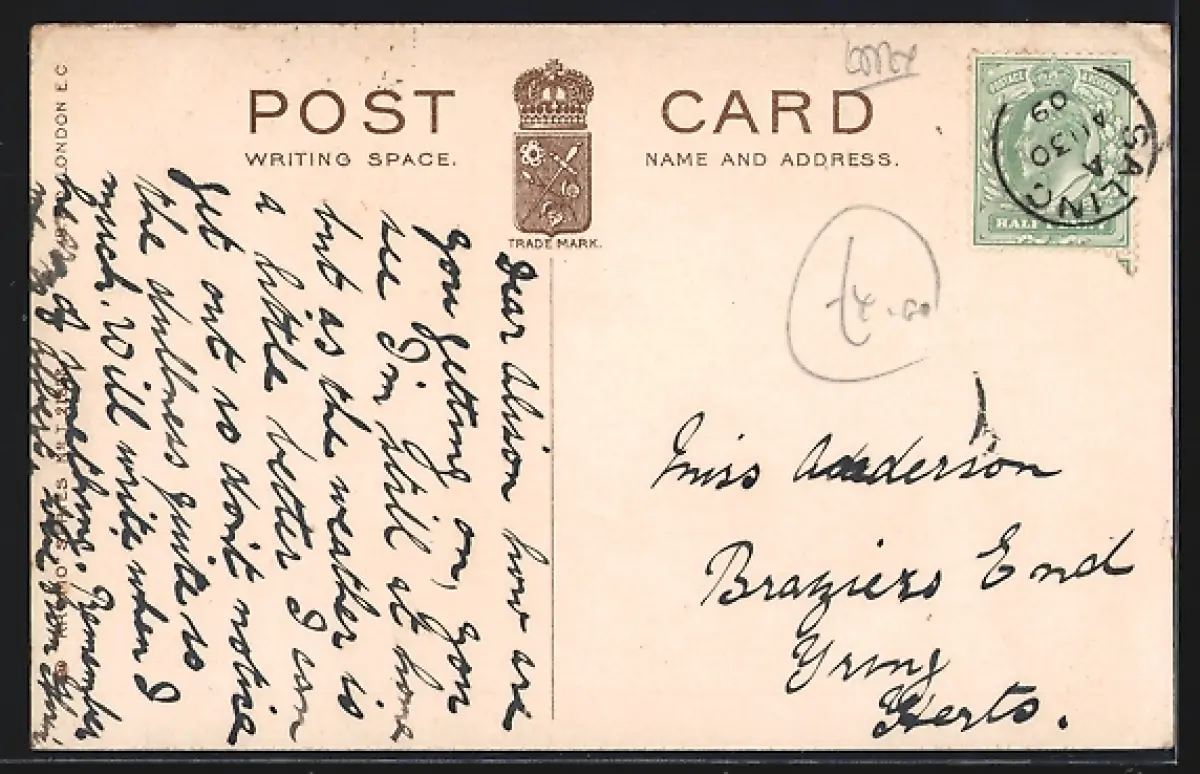 POST CARD
WRITING SPACE.
NAME AND ADDRESS.
TRADE MARK.
LONDON E.C
SALING
A
AU 30
09
HALF PENNY
£4.00
Miss Anderson
Braziers End
Tring
Herts.
Dear Alison how are
you getting on, you
see I'm still at home
but as the weather is
a little better I can
get out so don't notice
the dulness quite so
much. Will write when I
hear of something. Remember
me to